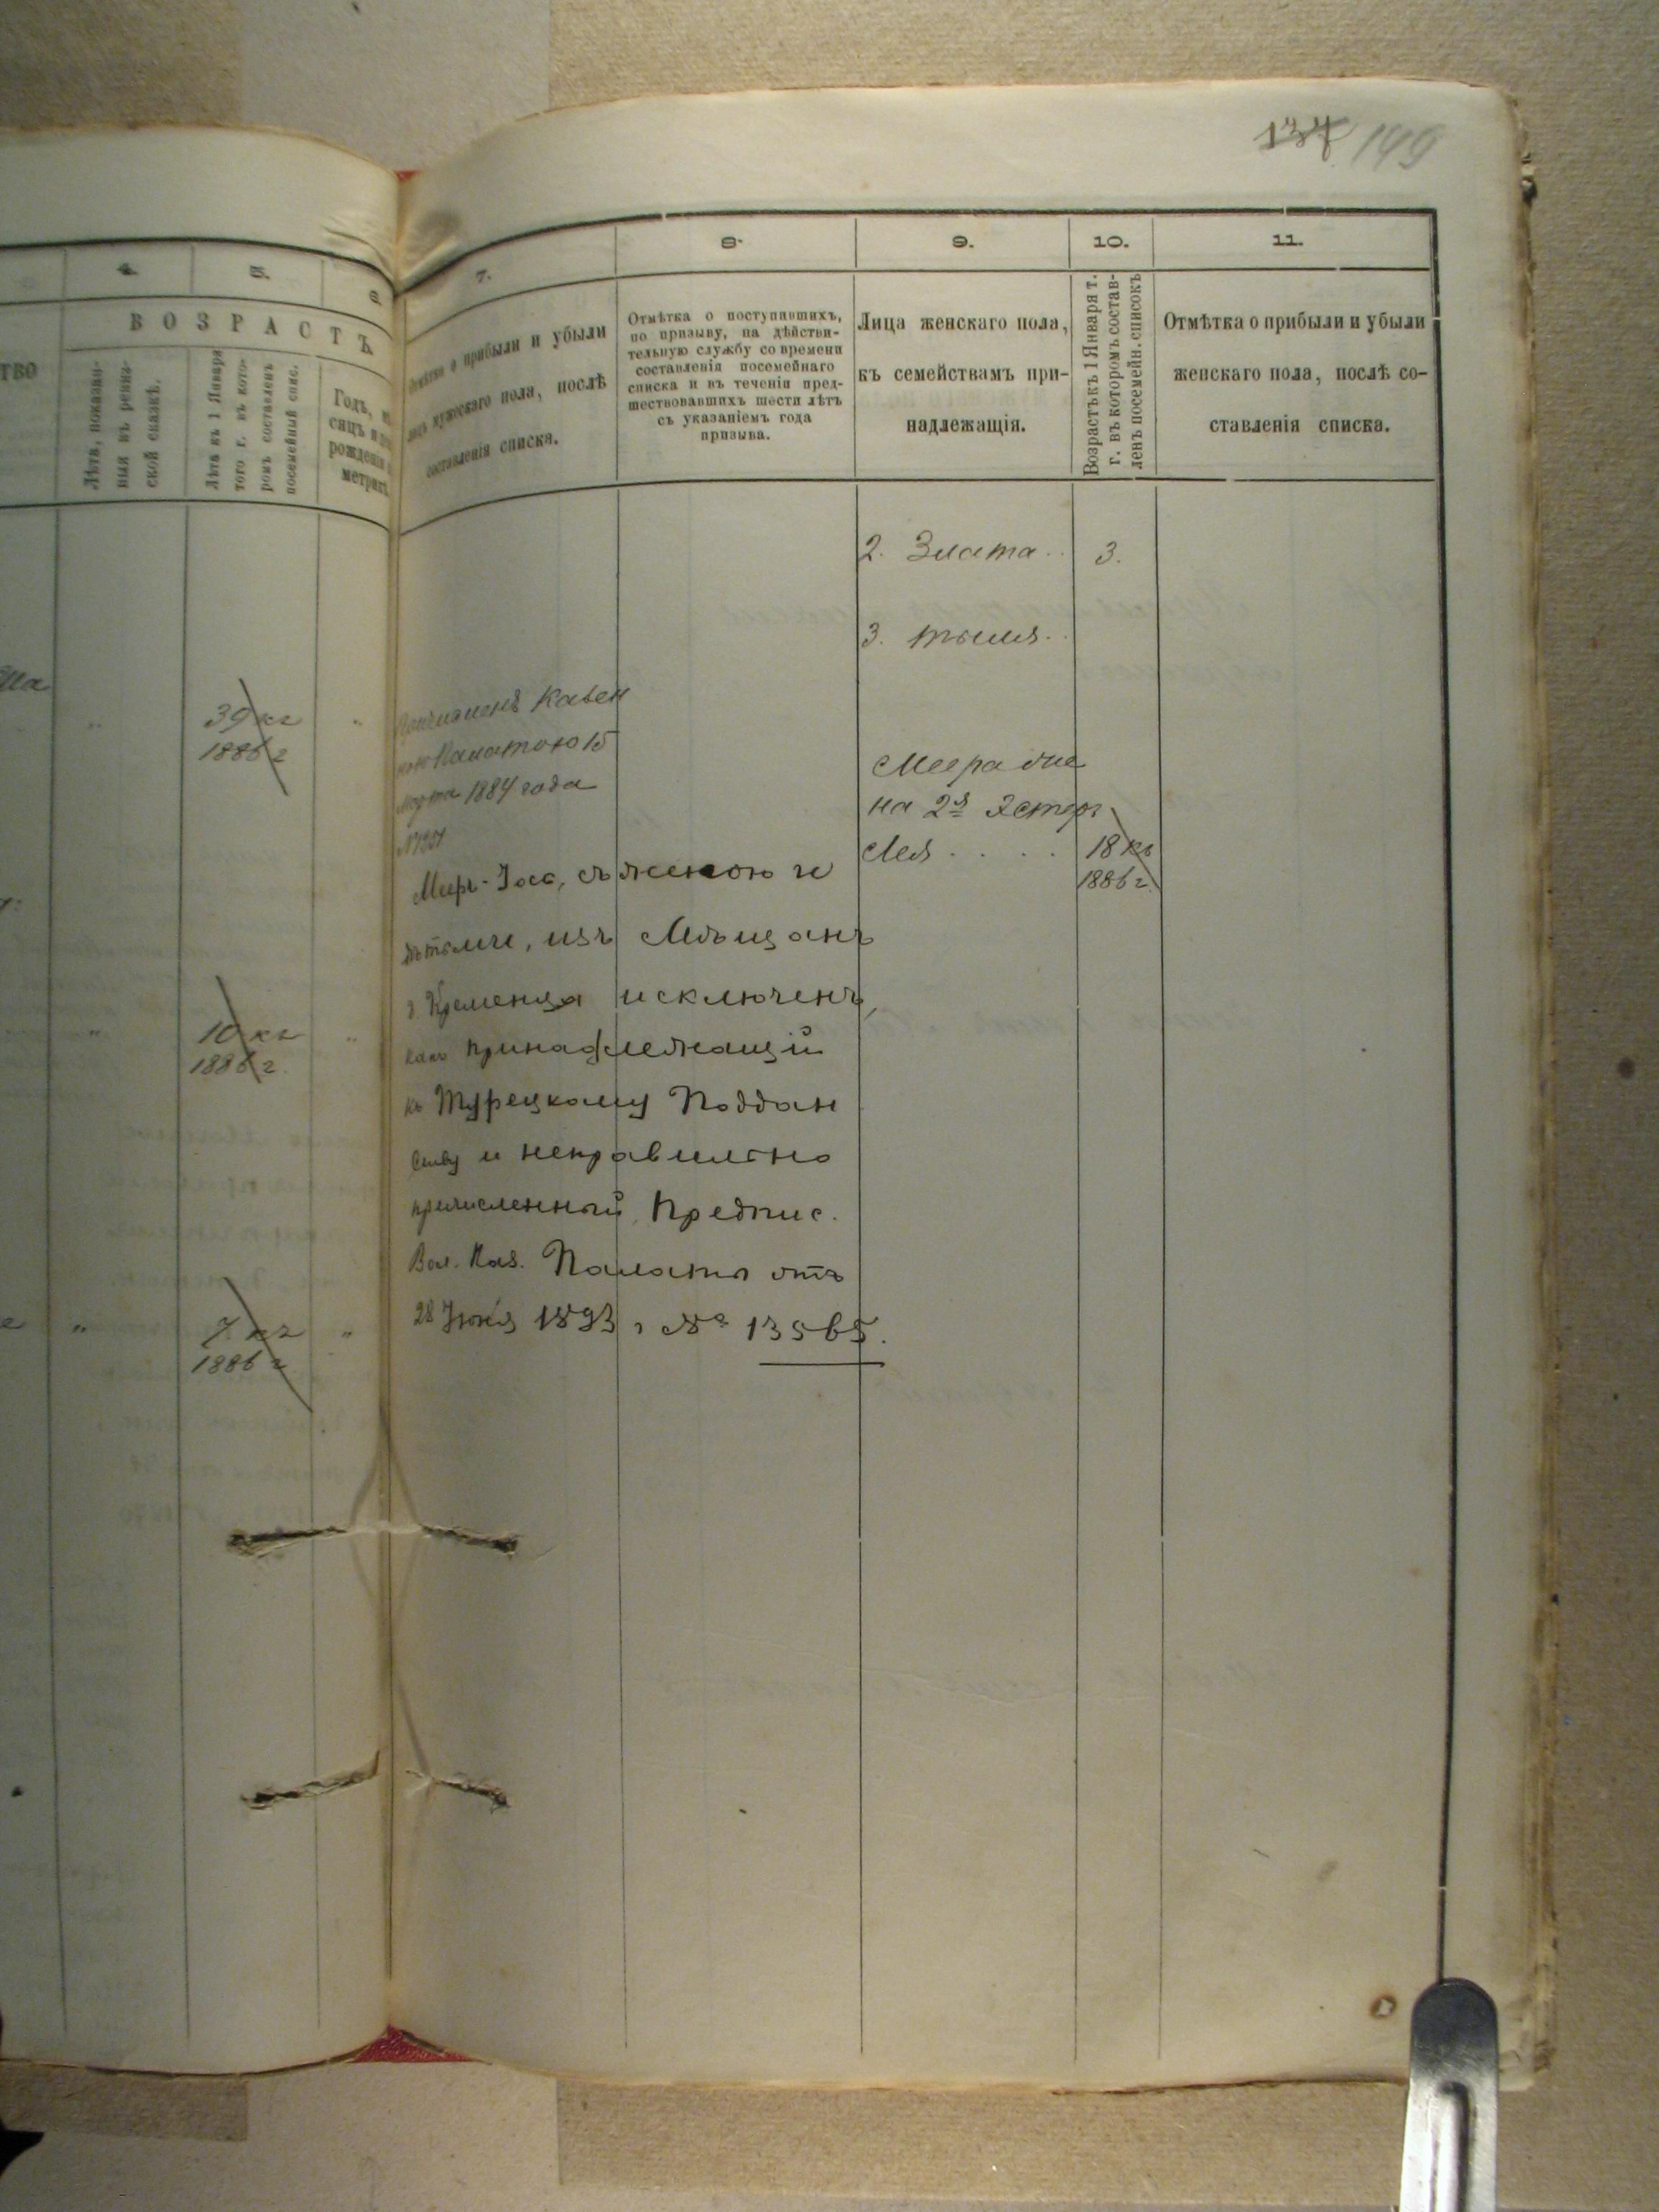 137 149
4. 5. 6.
ВОЗРАСТЪ
ТВО
Лѣта, показан-
ныя въ ревиз-
ской сказкѣ.
Лѣта къ 1 Января
того г. въ кото-
ромъ составленъ
посемейный спис.
Годъ, мѣ
сяцъ и
рожденія
метрик
39 къ
1886 г
10 къ
1886 г.
7 къ
1886 г
7. 8. 9. 10. 11.
Отмѣтка о прибыли и убыли
лицъ мужескаго пола, послѣ
составленія списка.
Отмѣтка о поступившихъ,
по призыву, на дѣйстви-
тельную службу со времени
составленія посемейнаго
списка и въ теченіи пред-
шествовавшихъ шести лѣтъ
съ указаніемъ года
призыва.
Лица женскаго пола,
къ семействамъ при-
надлежащія.
Возрастъ къ 1 Января т.
г. въ которомъ состав-
ленъ посемейн. списокъ
Отмѣтка о прибыли и убыли
женскаго пола, послѣ со-
ставленія списка.
2. Злата .. 3.
3. ..
Казен
ною Палатою 15
марта 1884 года
Меера же
на 2я Эстеръ
Лея . . . . 18 къ
1886 г.
съ женою и
дѣтьми, изъ Мѣщанъ
г. Кременца исключенъ,
какъ принадлежащій
къ Турецкому Поддан
ству и неправильно
причисленный, Предпис.
Вол. Каз. Палаты отъ
28 1893 г № 13565.